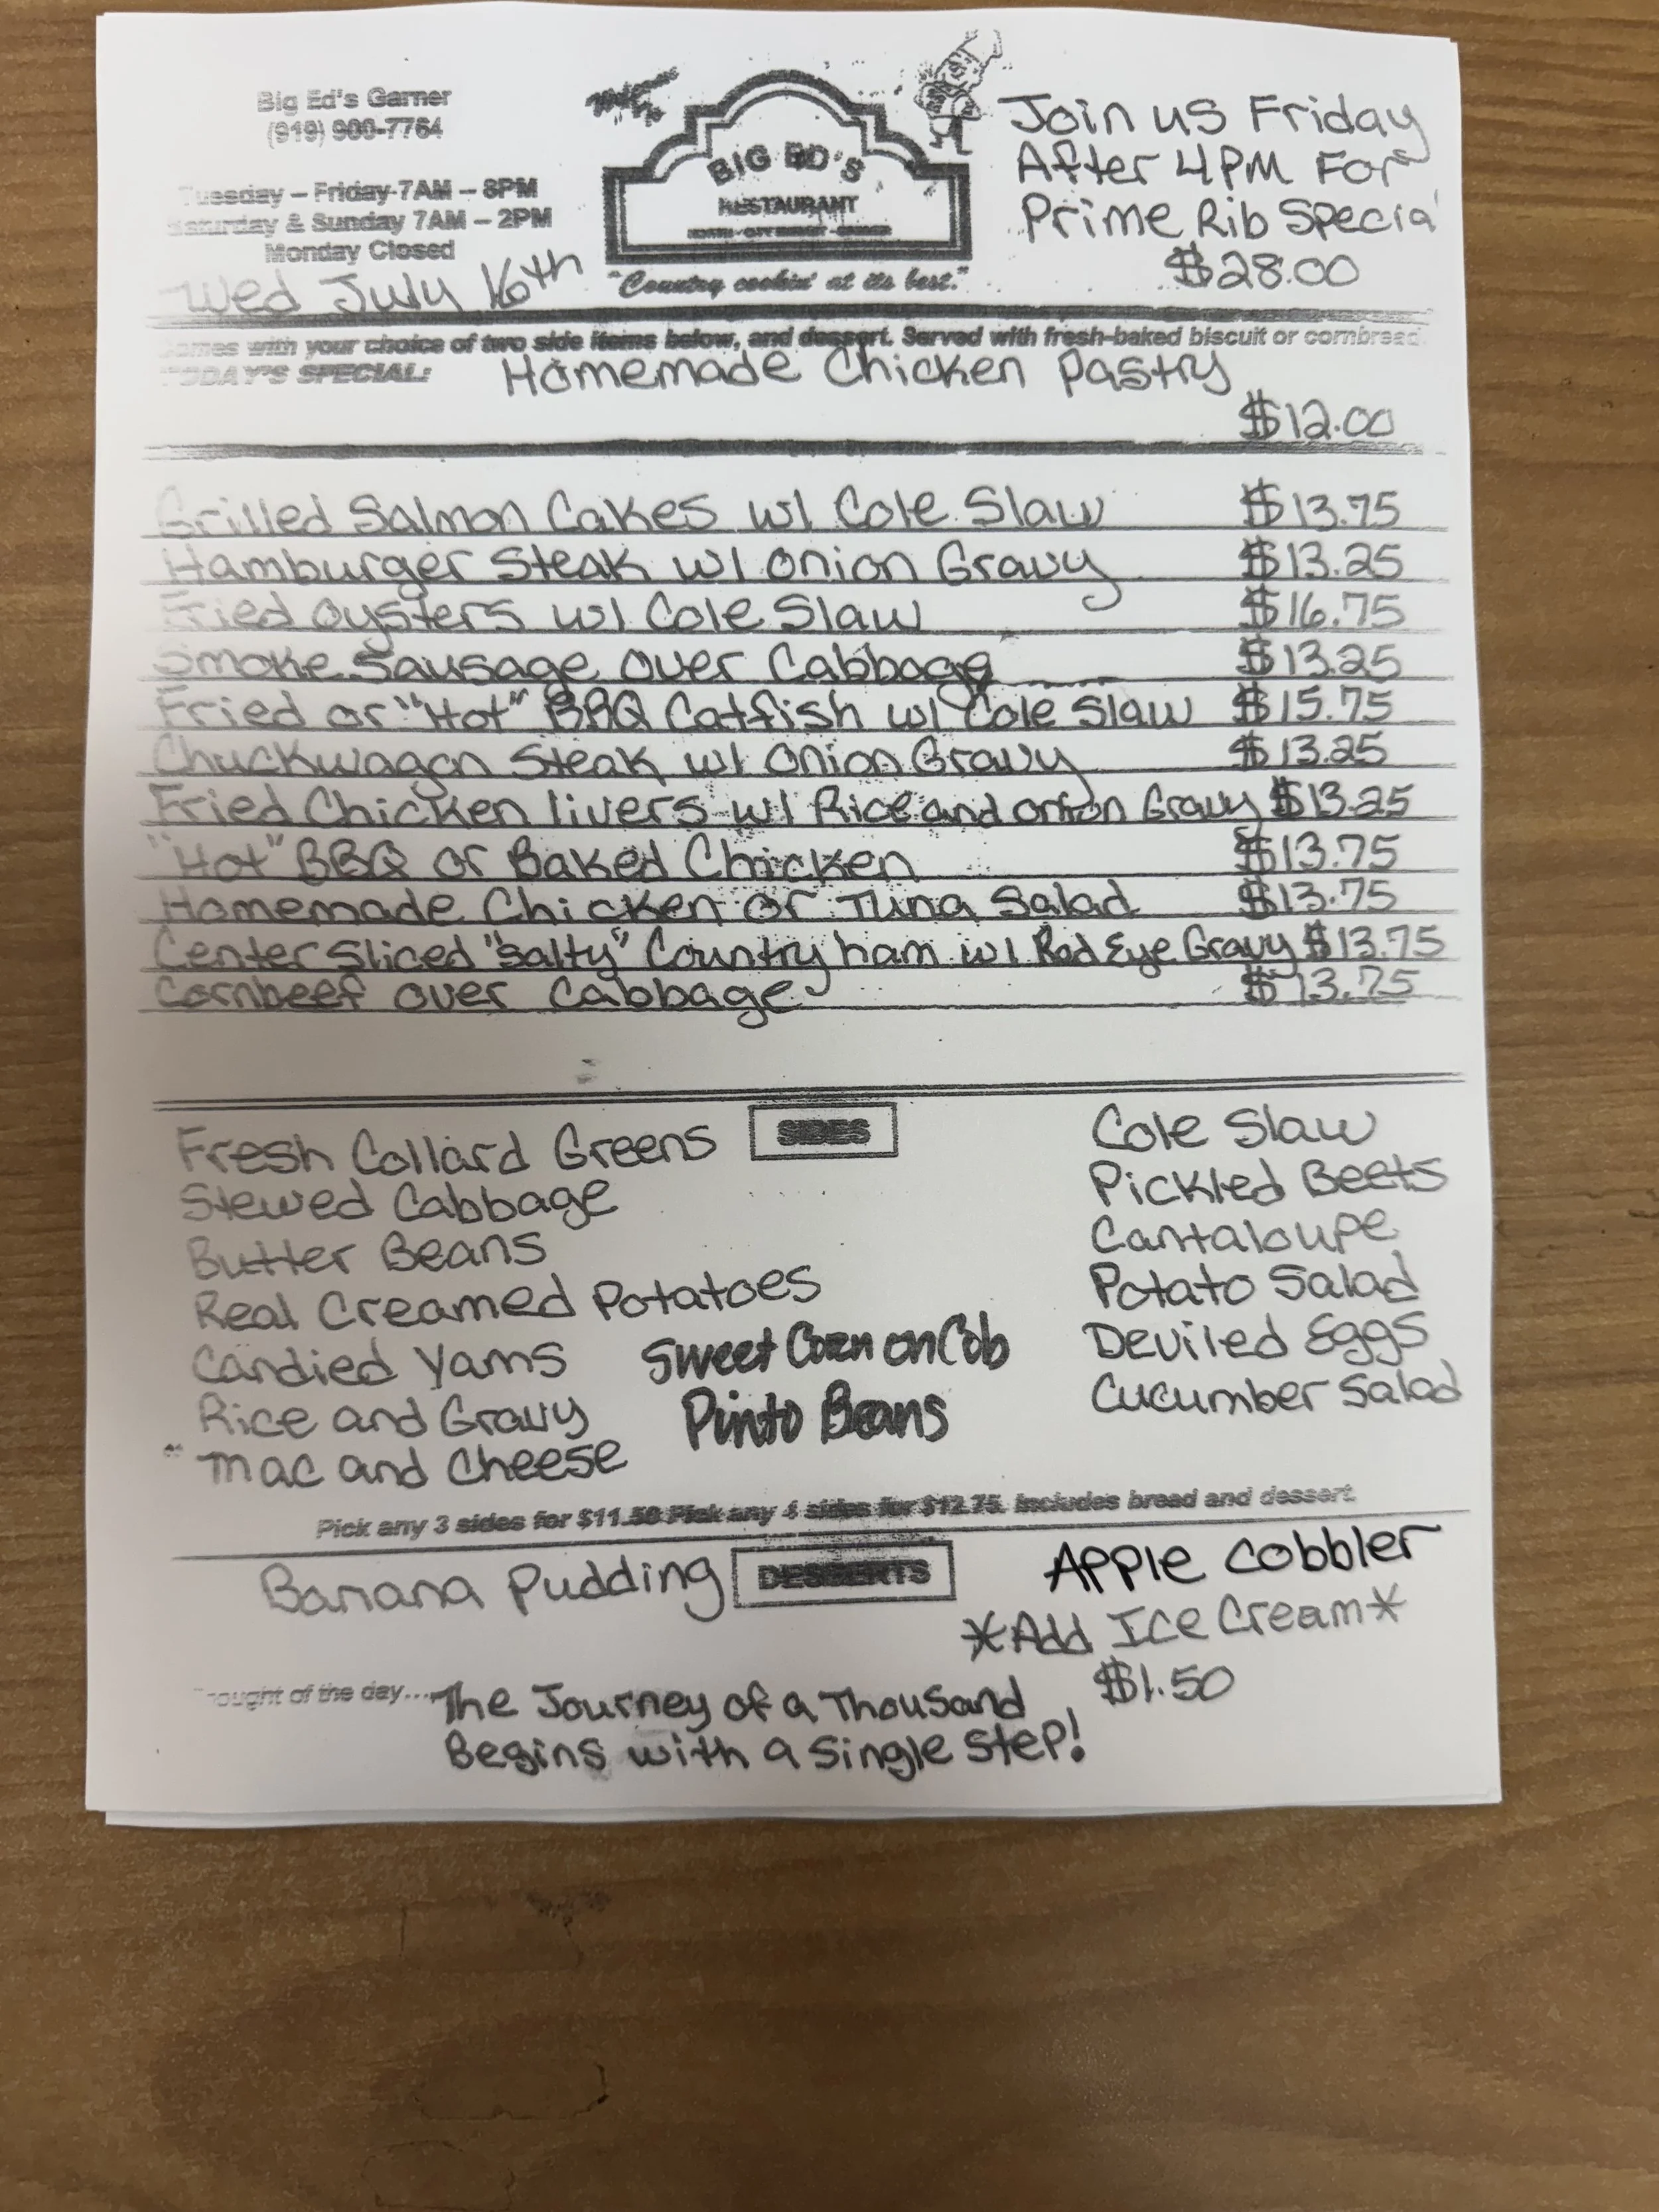 Big Ed's Garner
(919) 900-7764
Tuesday – Friday 7AM – 8PM
Saturday & Sunday 7AM – 2PM
Monday Closed
Wed July 16th
Welcome To
BIG ED'S
RESTAURANT
"Country cookin' at its best."
Join us Friday
After 4PM For
Prime Rib Special
$28.00
Comes with your choice of two side items below, and dessert. Served with fresh-baked biscuit or cornbread.
TODAY'S SPECIAL: Homemade Chicken Pastry
$12.00
Grilled Salmon Cakes w/ Cole Slaw $13.75
Hamburger Steak w/ Onion Gravy $13.25
Fried Oysters w/ Cole Slaw $16.75
Smoke Sausage over Cabbage $13.25
Fried or "Hot" BBQ Catfish w/ Cole Slaw $15.75
Chuckwagon Steak w/ Onion Gravy $13.25
Fried Chicken livers w/ Rice and onion Gravy $13.25
"Hot" BBQ or Baked Chicken $13.75
Homemade Chicken or Tuna Salad $13.75
Center Sliced "Salty" Country ham w/ Red Eye Gravy $13.75
Cornbeef over Cabbage $13.75
SIDES
Fresh Collard Greens
Stewed Cabbage
Butter Beans
Real Creamed Potatoes
Candied Yams
Rice and Gravy
Mac and Cheese
Sweet Corn on Cob
Pinto Beans
Cole Slaw
Pickled Beets
Cantaloupe
Potato Salad
Deviled Eggs
Cucumber Salad
Pick any 3 sides for $11.50 Pick any 4 sides for $12.75. Includes bread and dessert.
DESSERTS
Banana Pudding
Apple Cobbler
*Add Ice Cream*
$1.50
Thought of the day... The Journey of a Thousand
Begins with a Single Step!